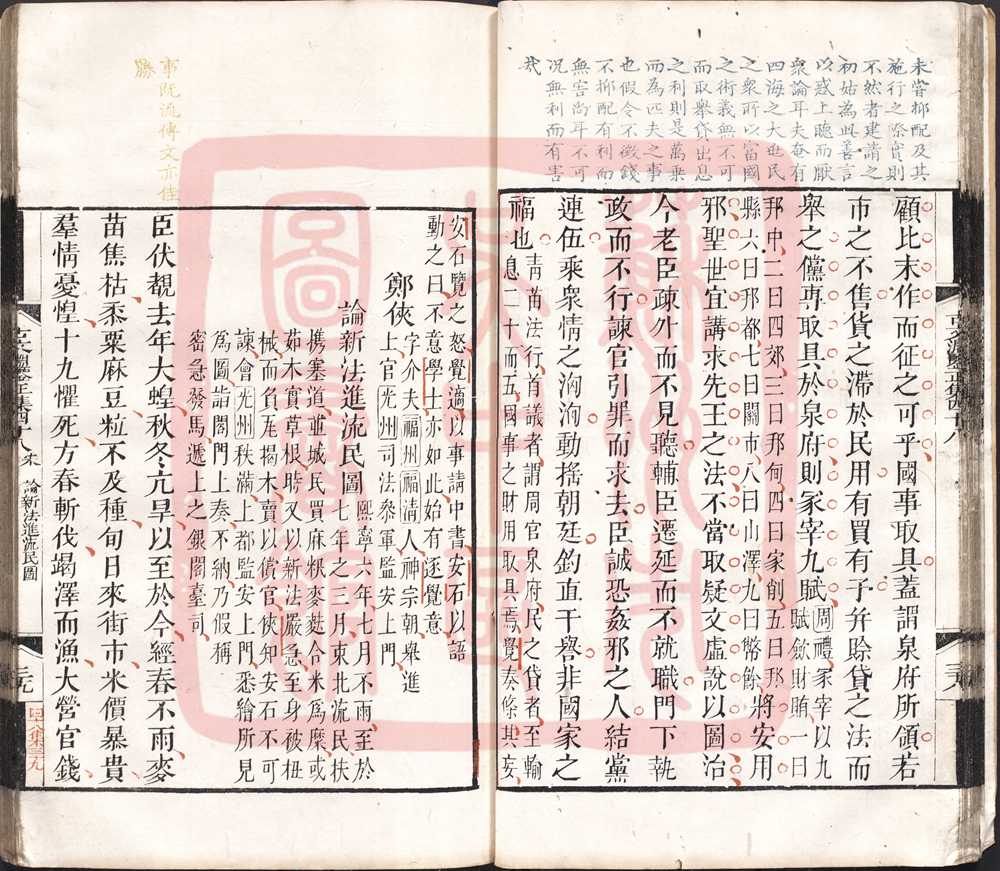 未嘗抑配及其
施行之際實則
不然者建請之
初姑為此善言
以惑上聽而厭
衆論耳夫奄有
四海之大㐲民
之衆所以富國
之術義無不可
而取舉貸出息
之利則是萬乗
而為匹夫之事
也假令不徴錢
不抑配有利而
無害尚耳不可
况無利而有害
哉
顧比末作而征之可乎國事取具蓋謂泉府所領若
市之不售貨之滯於民用有買有予并賖貸之法而
舉之儻專取具於泉府則冢宰九賦
周禮冢宰以九
賦歛財賄一曰
邦中二曰四郊三曰邦甸四曰家削五曰邦
縣六曰邦都七曰關市八曰山澤九曰幣餘
將安用
邪聖世宜講求先王之法不當取疑文虛說以圖治
今老臣疎外而不見聽輔臣遷延而不就職門下執
政而不行諫官引罪而求去臣誠恐姦邪之人結黨
連伍乘衆情之洶洶動揺朝廷釣直干譽非國家之
福也
青苗法行首議者謂周官泉府民之貸者至輸
息二十而五國事之財用取具焉覺奏條其妄
事既流傳文亦佳
勝
安石覽之怒覺適以事請中書安石以語
動之曰不意學士亦如此始有逐覺意
鄭俠
字介夫福州福清人神宗朝舉進
士官光州司法叅軍監安上門
論新法進流民圖
熙寧六年七月不雨至於
七年之三月東北流民扶
携塞道並城民買麻䊳麥麩合米爲糜或
茹木實草根時又以新法嚴急至身被杻
械而負㡯揭木賣以償官俠知安石不可
諫會光州秩滿上都監安上門悉繪所見
爲圖詣閤門上奏不納乃假稱
密急發馬遞上之銀閤臺司
臣伏覩去年大蝗秋冬亢旱以至於今經春不雨麥
苗焦枯黍粟麻豆粒不及種旬日來街市米價暴貴
羣情憂惶十九懼死方春斬伐竭澤而漁大營官錢
論新法進流民圖